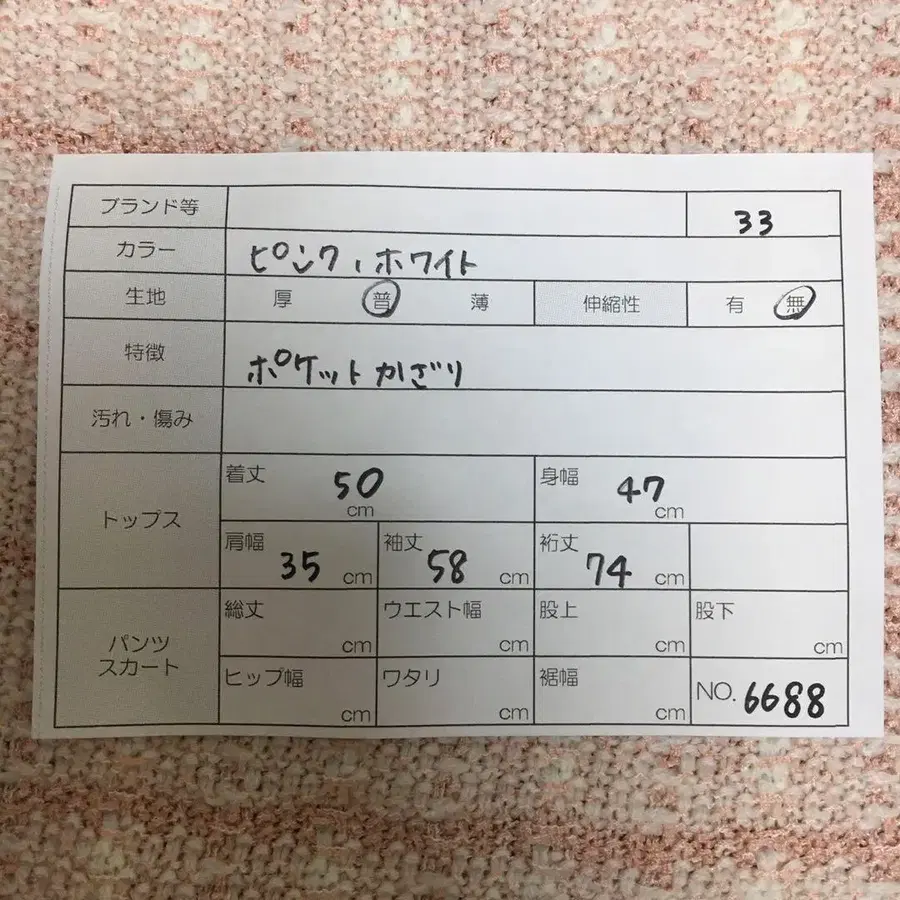 ブランド等 33
カラー ピンク、ホワイト
生地 厚 普 薄 伸縮性 有 無
特徴 ポケットかざり
汚れ・傷み
トップス 着丈 50 cm 身幅 47 cm
肩幅 35 cm 袖丈 58 cm 裄丈 74 cm
パンツ スカート 総丈 cm ウエスト幅 cm 股上 cm 股下 cm
ヒップ幅 cm ワタリ cm 裾幅 cm NO. 6688